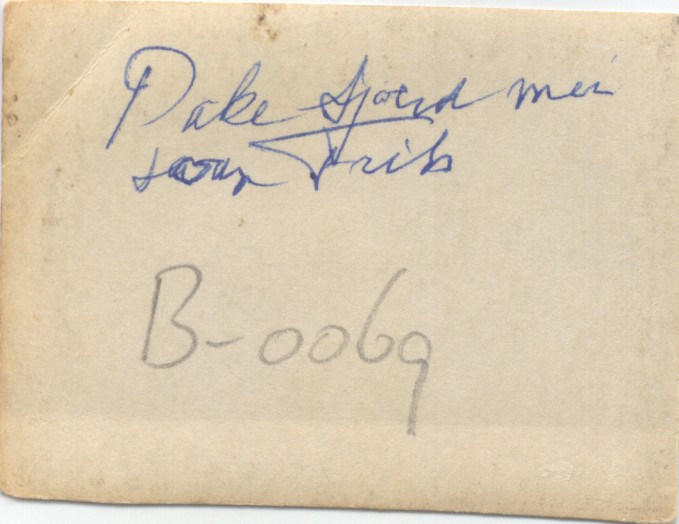 Pake Sjoerd mei
soan Frits
B-0069